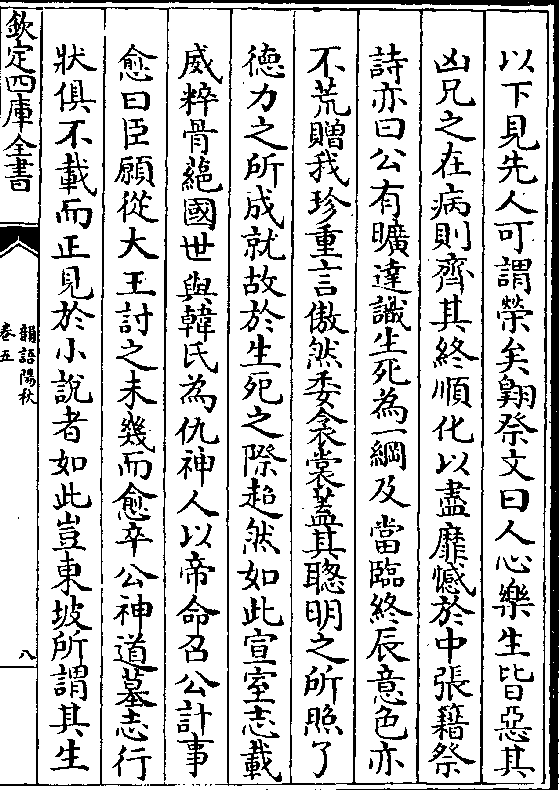 以下見先人可謂榮矣翺祭文曰人心樂生皆惡其
凶兄之在病則齊其終順化以盡靡憾於中張籍祭
詩亦曰公有曠達識生死為一綱及當臨終辰意色亦
不荒贈我珍重言傲然委衾裳蓋其聰明之所照了
德力之所成就故於生死之際超然如此宣室志載
威粹骨蕝國世與韓氏為仇神人以帝命召公計事
愈曰臣願從大王討之未幾而愈卒公神道墓志行
狀俱不載而正見於小說者如此豈東坡所謂其生
欽定四庫全書
韻語陽秋
卷五
八